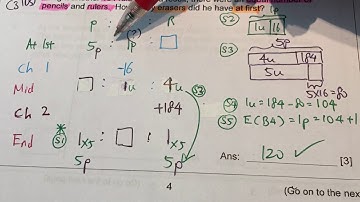 pencils and rulers. How many erasers did he have at first?
P : (?) : R
At 1st 5p 1p □
Ch 1 -16
Mid □ : 1u : 4u
Ch 2 +184
End 1x5 : □ : 1x5
5p 5p
S1
S2
1u 16
S3
5p
4u 184
5u
5x16=80
S4 1u = 184-80 = 104
S5 E(B4) = 1p = 104+1
Ans: 120 ✓
[3]
4
(Go on to the nex